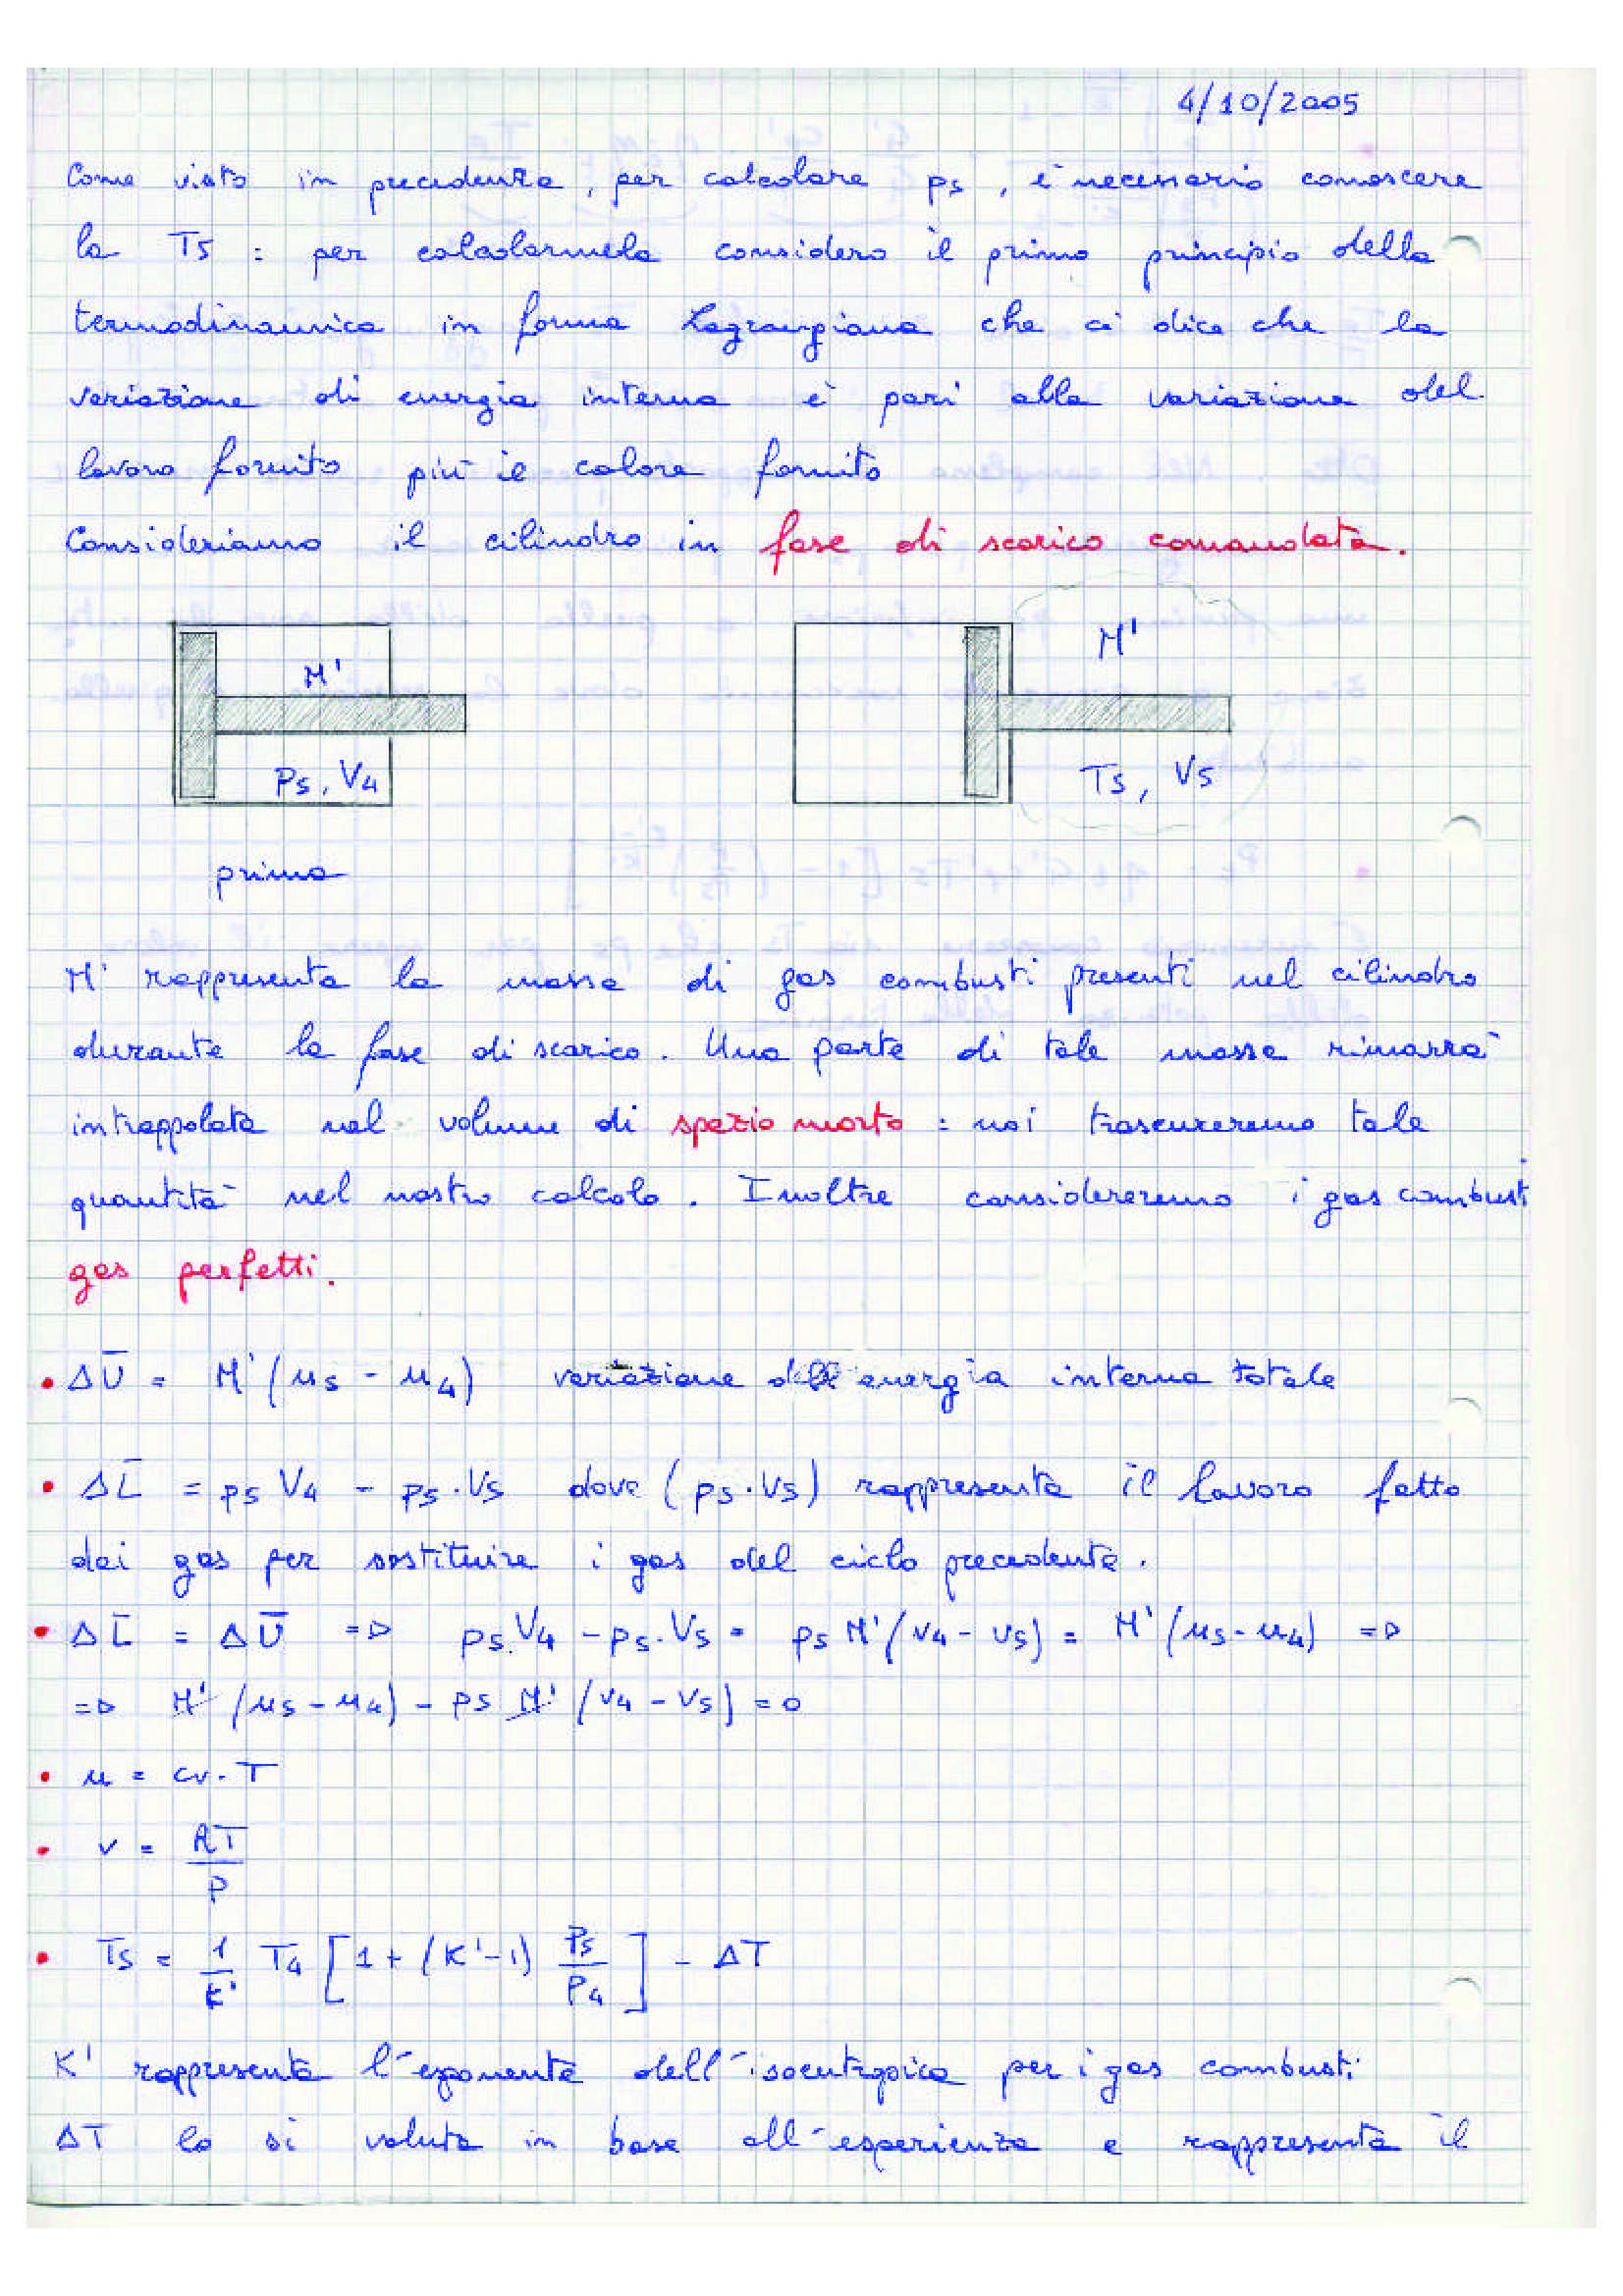 4/10/2005
Come visto in precedenza, per calcolare p5, è necessario conoscere
la T5 : per calcolarmela considero il primo principio della
termodinamica in forma Lagrangiana che ci dice che la
variazione di energia interna è pari alla variazione del
lavoro fornito più il calore fornito
Consideriamo il cilindro in fase di scarico comandata.
M' M'
P5, V4 T5, V5
prima
M' rappresenta la massa di gas combusti presenti nel cilindro
durante la fase di scarico. Una parte di tale massa rimarrà
intrappolata nel volume di spazio morto : noi trascureremo tale
quantità nel nostro calcolo. Inoltre considereremo i gas combusti
gas perfetti.
• ΔU̅ = M'(u5 - u4) variazione dell'energia interna totale
• ΔL̅ = p5 V4 - p5·V5 dove (p5·V5) rappresenta il lavoro fatto
dai gas per sostituire i gas del ciclo precedente.
• ΔL̅ = ΔU̅ => p5·V4 - p5·V5 = p5 M'(v4 - v5) = M'(u5 - u4) =>
=> M' (u5 - u4) - p5 M' (v4 - v5) = 0
• u = cv·T
• v = RT/P
• T5 = 1/K' T4 [1 + (K'-1) P5/P4] - ΔT
K' rappresenta l'esponente dell'isoentropica per i gas combusti
ΔT lo si valuta in base all'esperienza e rappresenta il